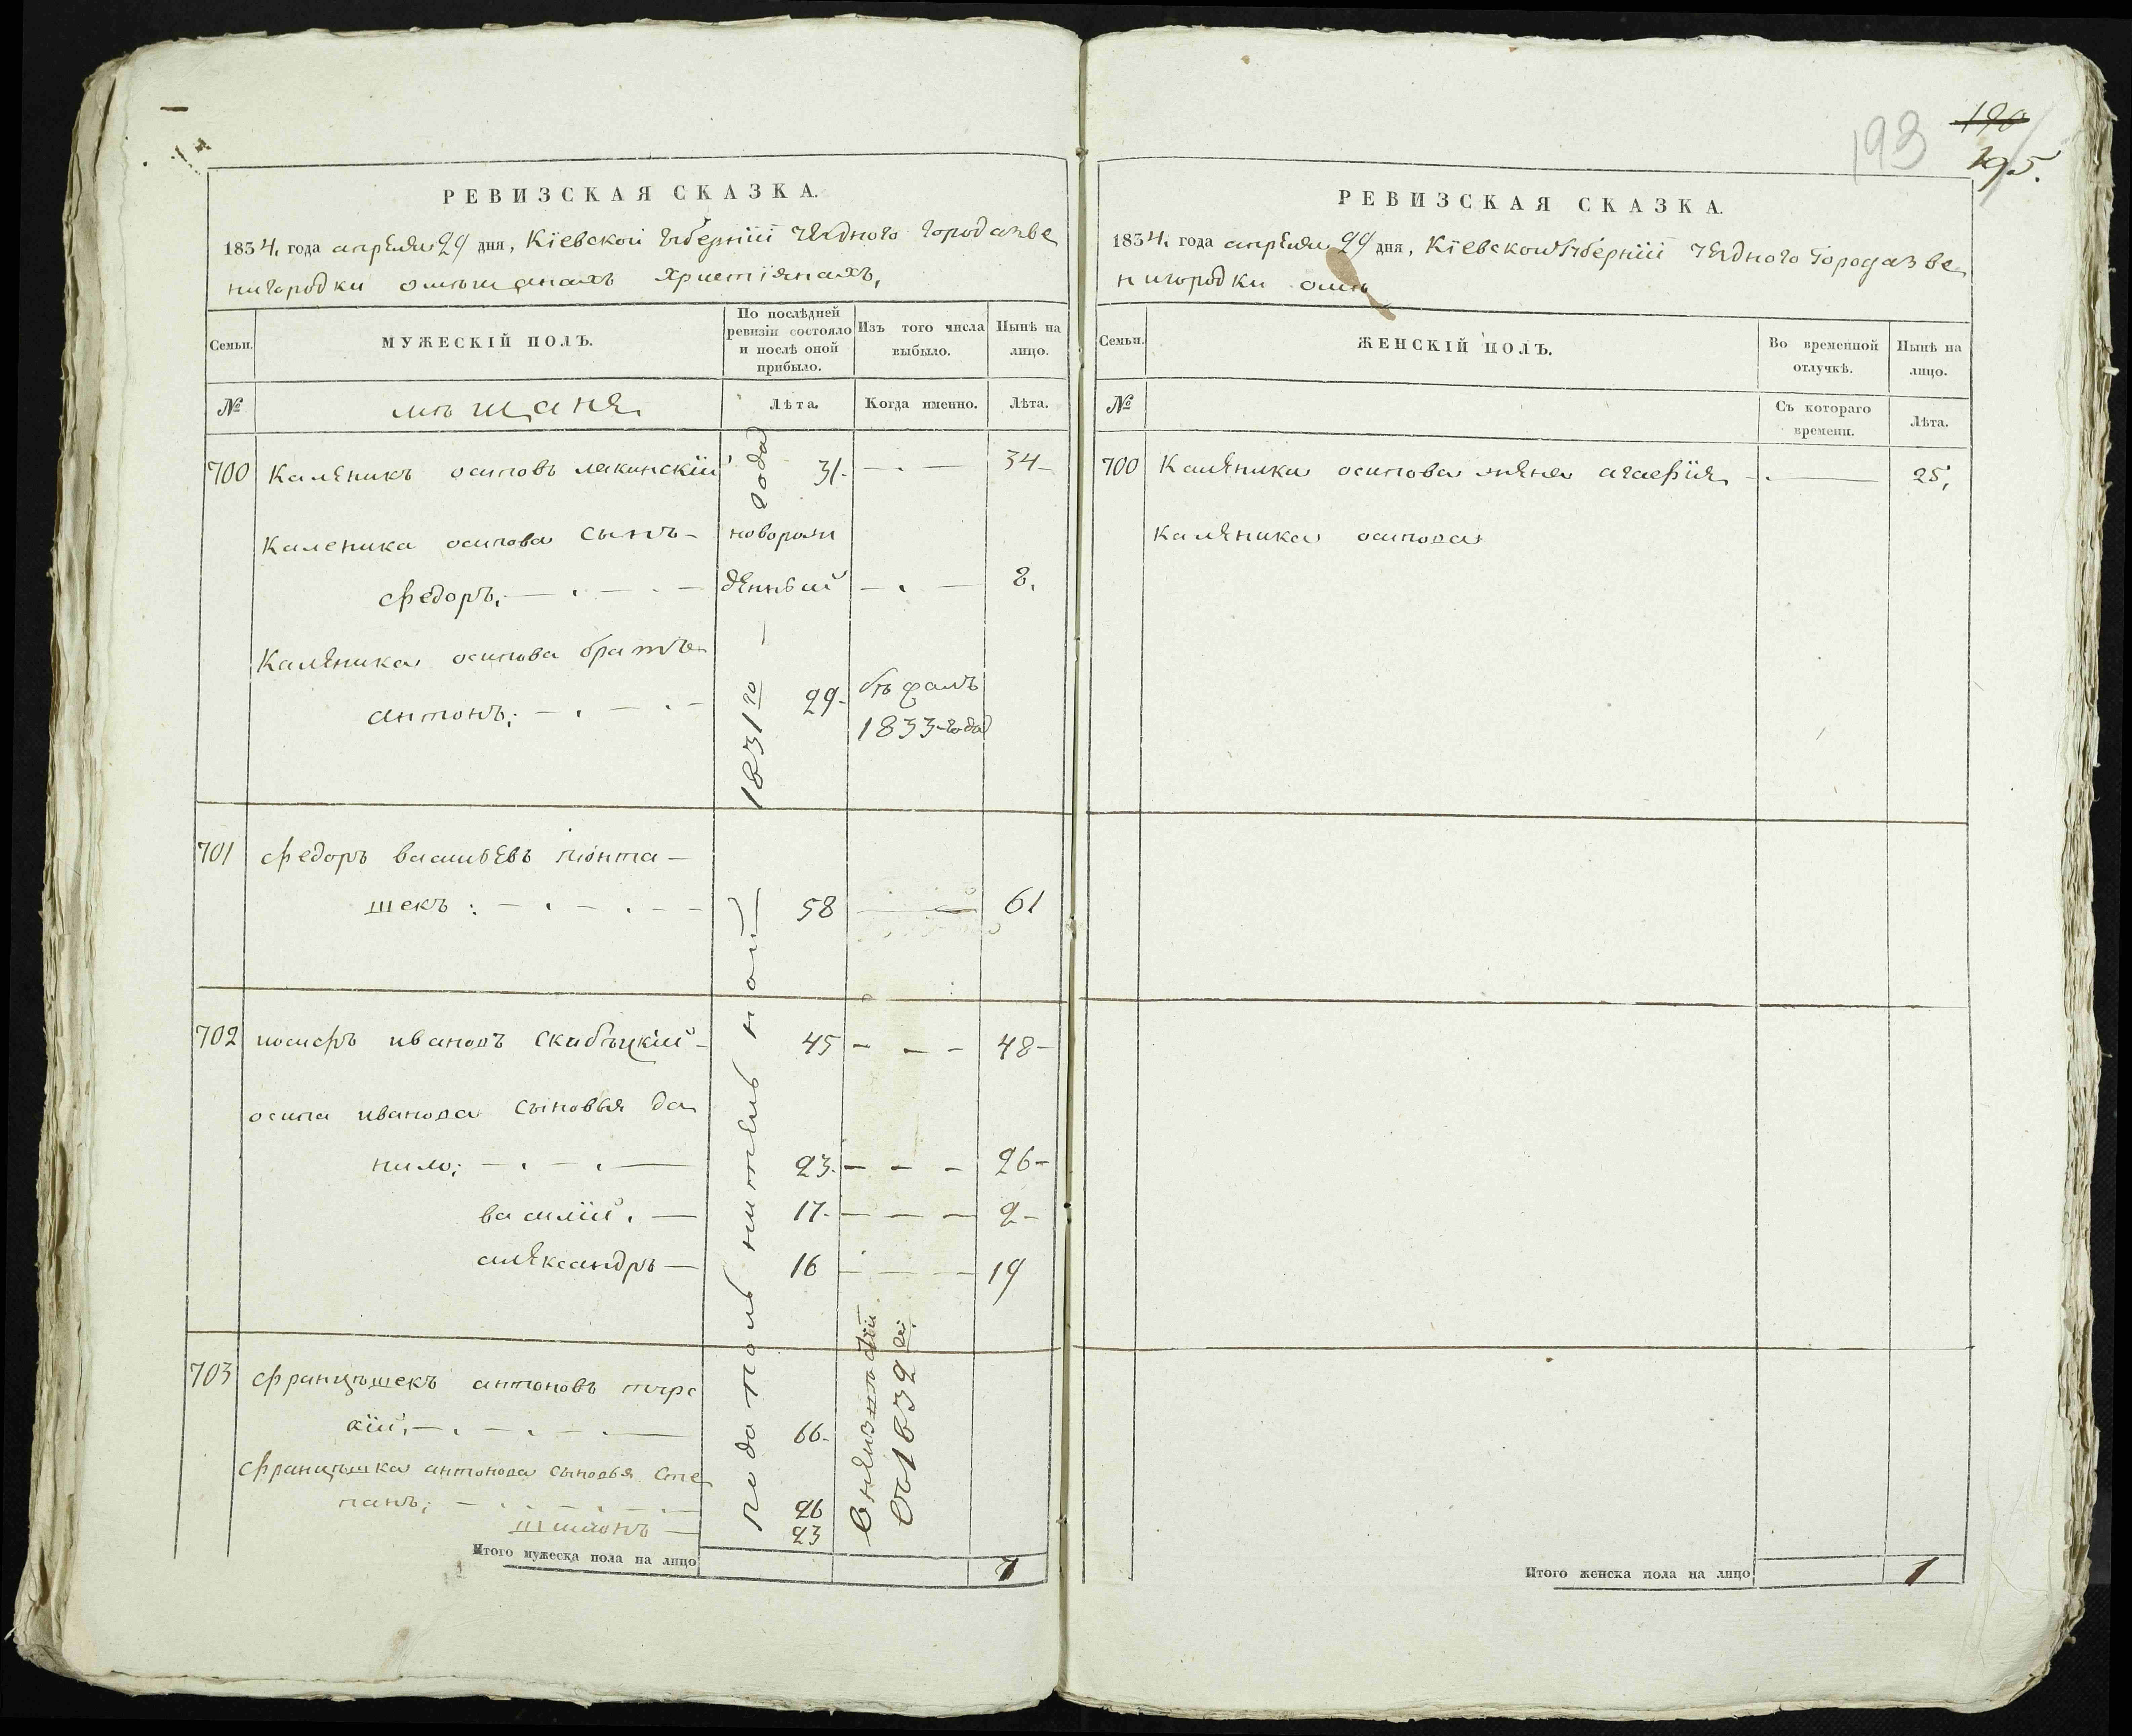 РЕВИЗСКАЯ СКАЗКА.
1834, года апреля 29 дня, Кіевской губерніи уезднаго города Зве
нигородки омещанахъ христіянахъ,
Семьи.
МУЖЕСКІЙ ПОЛЪ.
По послѣдней ревизіи состояло и послѣ оной прибыло.
Изъ того числа выбыло.
Нынѣ на лицо.
№
мещаня
Лѣта.
Когда именно.
Лѣта.
700 Каленикъ осиповъ лакинскій 31- 34-
Каленика осипова сынъ- новорож
федоръ. денный 8.
Каленика осипова братъ
антонъ; 29- бегаетъ
1833 года
701 федоръ васильевъ пionта-
шекъ: 58 61
702 иосифъ ивановъ Скибицкій 45 48-
осипа иванова сыновья да
нило; 23. 26-
василій. 17- 2-
александръ 16 19
703 францышекъ антоновъ турс
кій, 66-
францышка антонова сыновья Сте
панъ; 26
шимонъ 23
подополнительной 1831го года
в 1832м
Итого мужеска пола на лицо 7
193
190
195.
РЕВИЗСКАЯ СКАЗКА.
1834, года апреля 29 дня, Кіевской губерніи уезднаго города Зве
нигородки оме
Семьи.
ЖЕНСКІЙ ПОЛЪ.
Во временной отлучкѣ.
Нынѣ на лицо.
№
Съ котораго времени.
Лѣта.
700 Каленика осипова жена агафія 25,
Каленика осипова
Итого женска пола на лицо 1